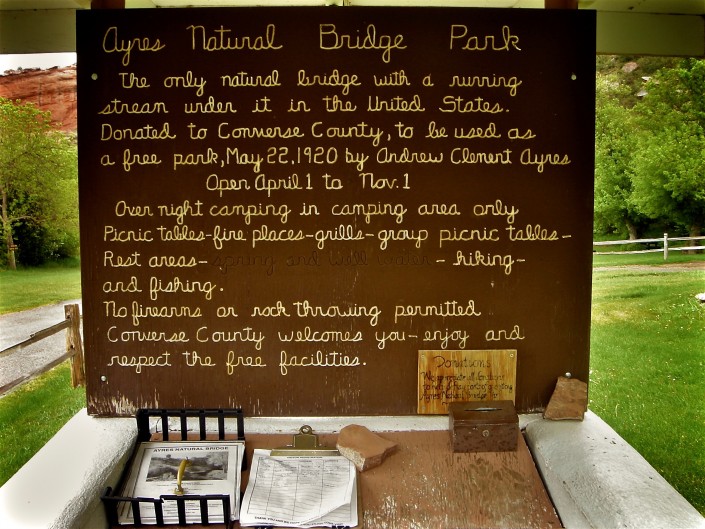 Ayres Natural Bridge Park
The only natural bridge with a running
stream under it in the United States.
Donated to Converse County, to be used as
a free park, May 22, 1920 by Andrew Clement Ayres
Open April 1 to Nov. 1
Over night camping in camping area only
Picnic tables-fire places-grills-group picnic tables-
Rest areas-spring and well water-hiking-
and fishing.
No firearms or rock throwing permitted
Converse County welcomes you-enjoy and
respect the free facilities.
Donations
Ayres Natural Bridge
AYRES NATURAL BRIDGE